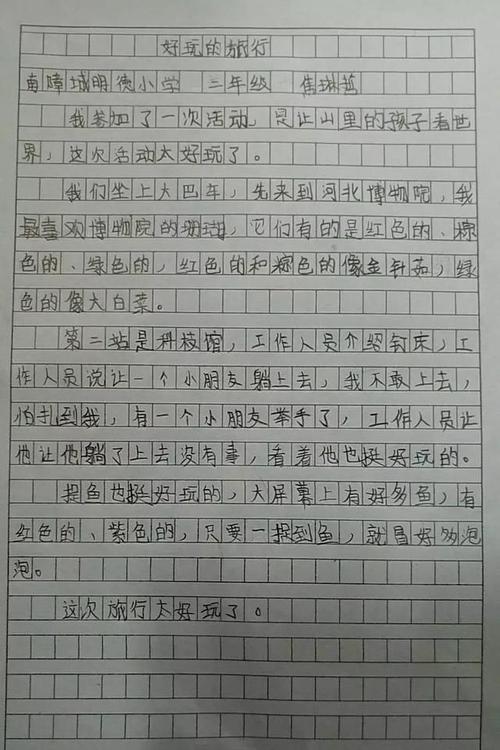 好玩的旅行
南障城明德小学 三年级 焦琳哲
我参加了一次活动，是让山里的孩子看世
界，这次活动太好玩了。
我们坐上大巴车，先来到河北博物院，我
最喜欢博物院的珊瑚，它们有的是红色的、棕
色的、绿色的，红色的和棕色的像金针茹，绿
色的像大白菜。
第二站是科技馆，工作人员介绍钉床，工
作人员说让一个小朋友躺上去，我不敢上去，
怕扎到我，有一个小朋友举手了，工作人员让
他让他躺了上去没有事，看着他也挺好玩的。
捉鱼也挺好玩的，大屏幕上有好多鱼，有
红色的、紫色的，只要一捉到鱼，就冒好多泡
泡。
这次旅行太好玩了。